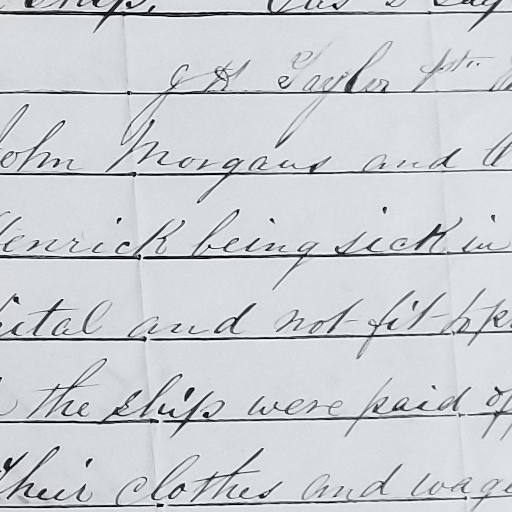 ship.
J H Taylor 1st
John Morgans and
Henrick being sick in
pital and not fit to
the ship were paid of
Their clothes and wage